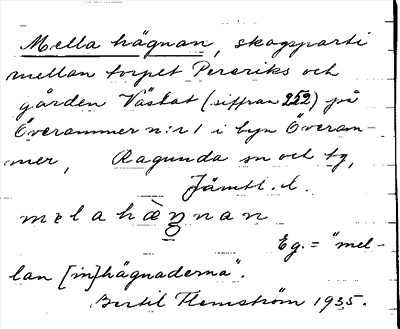 Mella hägnan, skogsparti
mellan torpet Pereriks och
gården Västat (siffran 252) på
Överammer n:r 1 i byn Överam-
mer, Ragunda sn och tg,
Jämtl. l.
melahàŋnan
Eg. = "mel-
lan [in]hägnaderna".
Bertil Flemström 1935.